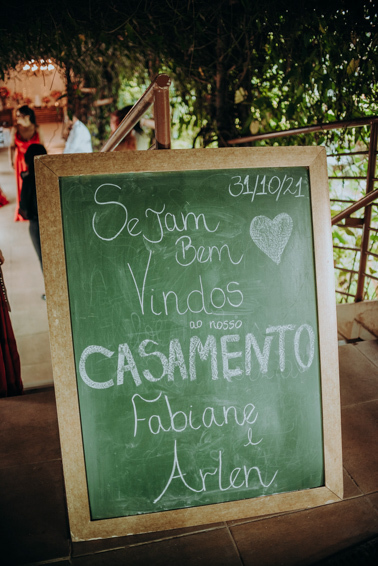 31/10/21
Sejam
Bem
Vindos
ao nosso
CASAMENTO
Fabiane
e
Arlen